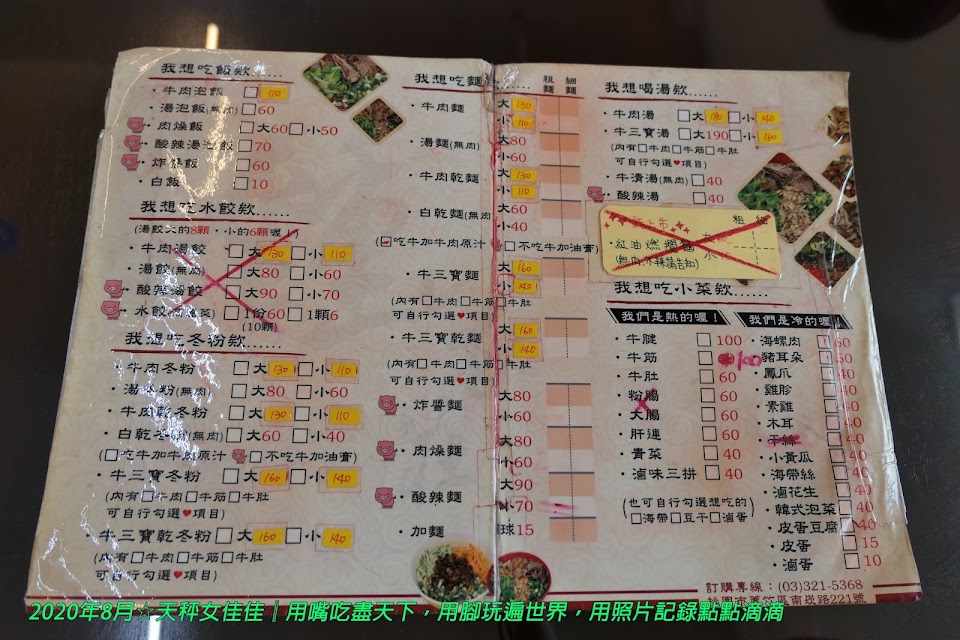 我想吃飯欸......
・牛肉泡飯 □ 110
・湯泡飯(無肉) □60
・肉燥飯 □大60□小50
・酸辣湯泡飯 □70
・炸醬飯 □60
・白飯 □10
我想吃水餃欸......
(湯餃大的8顆・小的6顆喔!)
・牛肉湯餃 □大130 □小110
・湯餃(無肉) □大80 □小60
・酸辣湯餃 □大90 □小70
・水餃 □1份60 □1顆6
(10顆)
我想吃冬粉欸......
・牛肉冬粉 □大130 □小110
・湯冬粉(無肉) □大80 □小60
・牛肉乾冬粉 □大130 □小110
・白乾冬粉(無肉) □大60 □小40
(□吃牛加牛肉原汁 □不吃牛加油膏)
・牛三寶冬粉 □大160 □小140
(內有□牛肉□牛筋□牛肚
可自行勾選♥項目)
・牛三寶乾冬粉 □大160 □小140
(內有□牛肉□牛筋□牛肚
可自行勾選♥項目)
我想吃麵欸...... 粗麵 細麵
・牛肉麵 大130
小110
・湯麵(無肉) 大80
小60
・牛肉乾麵 大130
小110
・白乾麵(無肉) 大60
小40
(□吃牛加牛肉原汁 □不吃牛加油膏)
・牛三寶麵 大160
小140
(內有□牛肉□牛筋□牛肚
可自行勾選♥項目)
・牛三寶乾麵 大160
小140
(內有□牛肉□牛筋□牛肚
可自行勾選♥項目)
・炸醬麵 大80
小60
・肉燥麵 大80
小60
・酸辣麵 大90
小70
・加麵 球15
我想喝湯欸......
・牛肉湯 □大180 □小140
・牛三寶湯 □大190□小160
(內有□牛肉□牛筋□牛肚
可自行勾選♥項目)
・牛清湯(無肉) □40
・酸辣湯 □40
上市 粗 細
・紅油燃麵 大
(無肉,不辣請告知) 小
我想吃小菜欸......
我們是熱的喔!
・牛腱 □100
・牛筋 □100
・牛肚 □60
・粉腸 □60
・大腸 □60
・肝連 □60
・青菜 □40
・滷味三拼 □40
(也可自行勾選想吃的)
□海帶□豆干□滷蛋
我們是冷的喔!
・海螺肉 □60
・豬耳朵 □50
・鳳爪 □40
・雞胗 □40
・素雞 □40
・木耳 □40
・干絲 □40
・小黃瓜 □40
・海帶絲 □40
・滷花生 □40
・韓式泡菜□40
・皮蛋豆腐□40
・皮蛋 □15
・滷蛋 □10
訂購專線:(03)321-5368
桃園市蘆竹區南崁路221號
2020年8月☆天秤女佳佳‖用嘴吃盡天下,用腳玩遍世界,用照片記錄點點滴滴